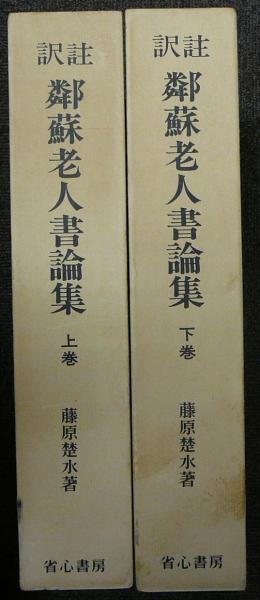 訳註
鄰蘇老人書論集
上巻
藤原楚水著
省心書房
訳註
鄰蘇老人書論集
下巻
藤原楚水著
省心書房